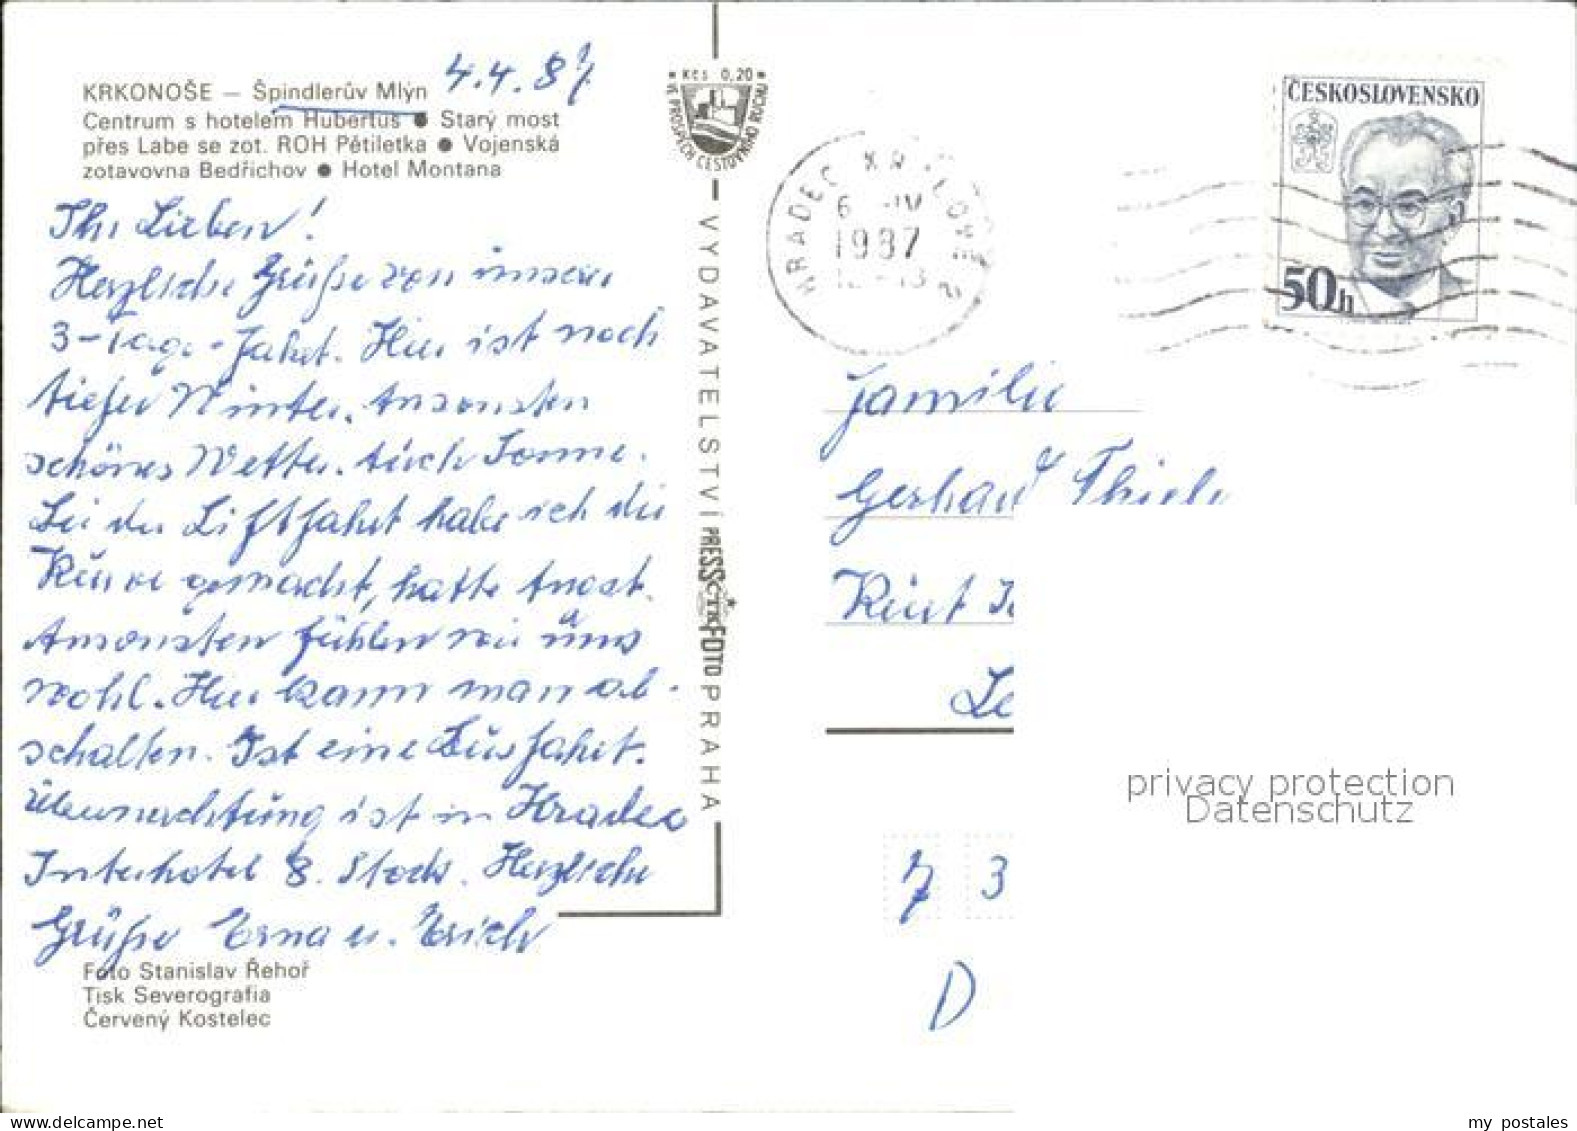 4.4.87
KRKONOŠE — Špindlerův Mlýn
Centrum s hotelem Hubertus ● Starý most
přes Labe se zot. ROH Pětiletka ● Vojenská
zotavovna Bedřichov ● Hotel Montana
Ihr Lieben!
Herzliche Grüße von unserer
3-Tage-Fahrt. Hier ist noch
tiefer Winter. Ansonsten
schönes Wetter. Auch Sonne.
Bei der Liftfahrt habe ich die
gemacht, hatte Angst.
Ansonsten fühlen wir uns
wohl. Hier kann man ab-
schalten. Ist eine Busfahrt.
Übernachtung ist in Hradec
Interhotel 8. Stock. Herzliche
Grüße Erna u. Erich
Foto Stanislav Řehoř
Tisk Severografia
Červený Kostelec
* Kčs 0,20 *
VE PROSPĚCH CESTOVNÍHO RUCHU
VYDAVATELSTVÍ PRESSFOTO PRAHA
ČTK
HRADEC KRÁLOVÉ 2
6. IV
1987
ČESKOSLOVENSKO
50h
Familie
Gerhard Thiele
Kurt
Le
7 3
D
privacy protection
Datenschutz
my postales